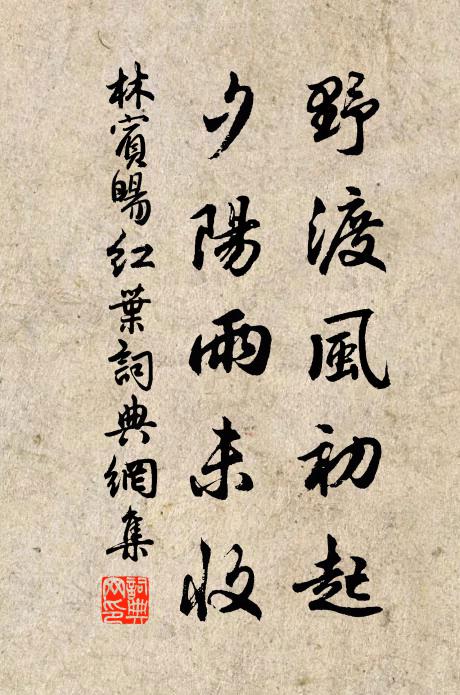 野渡風初起
夕陽雨未收
林賓暘紅葉詞典網集
詞典